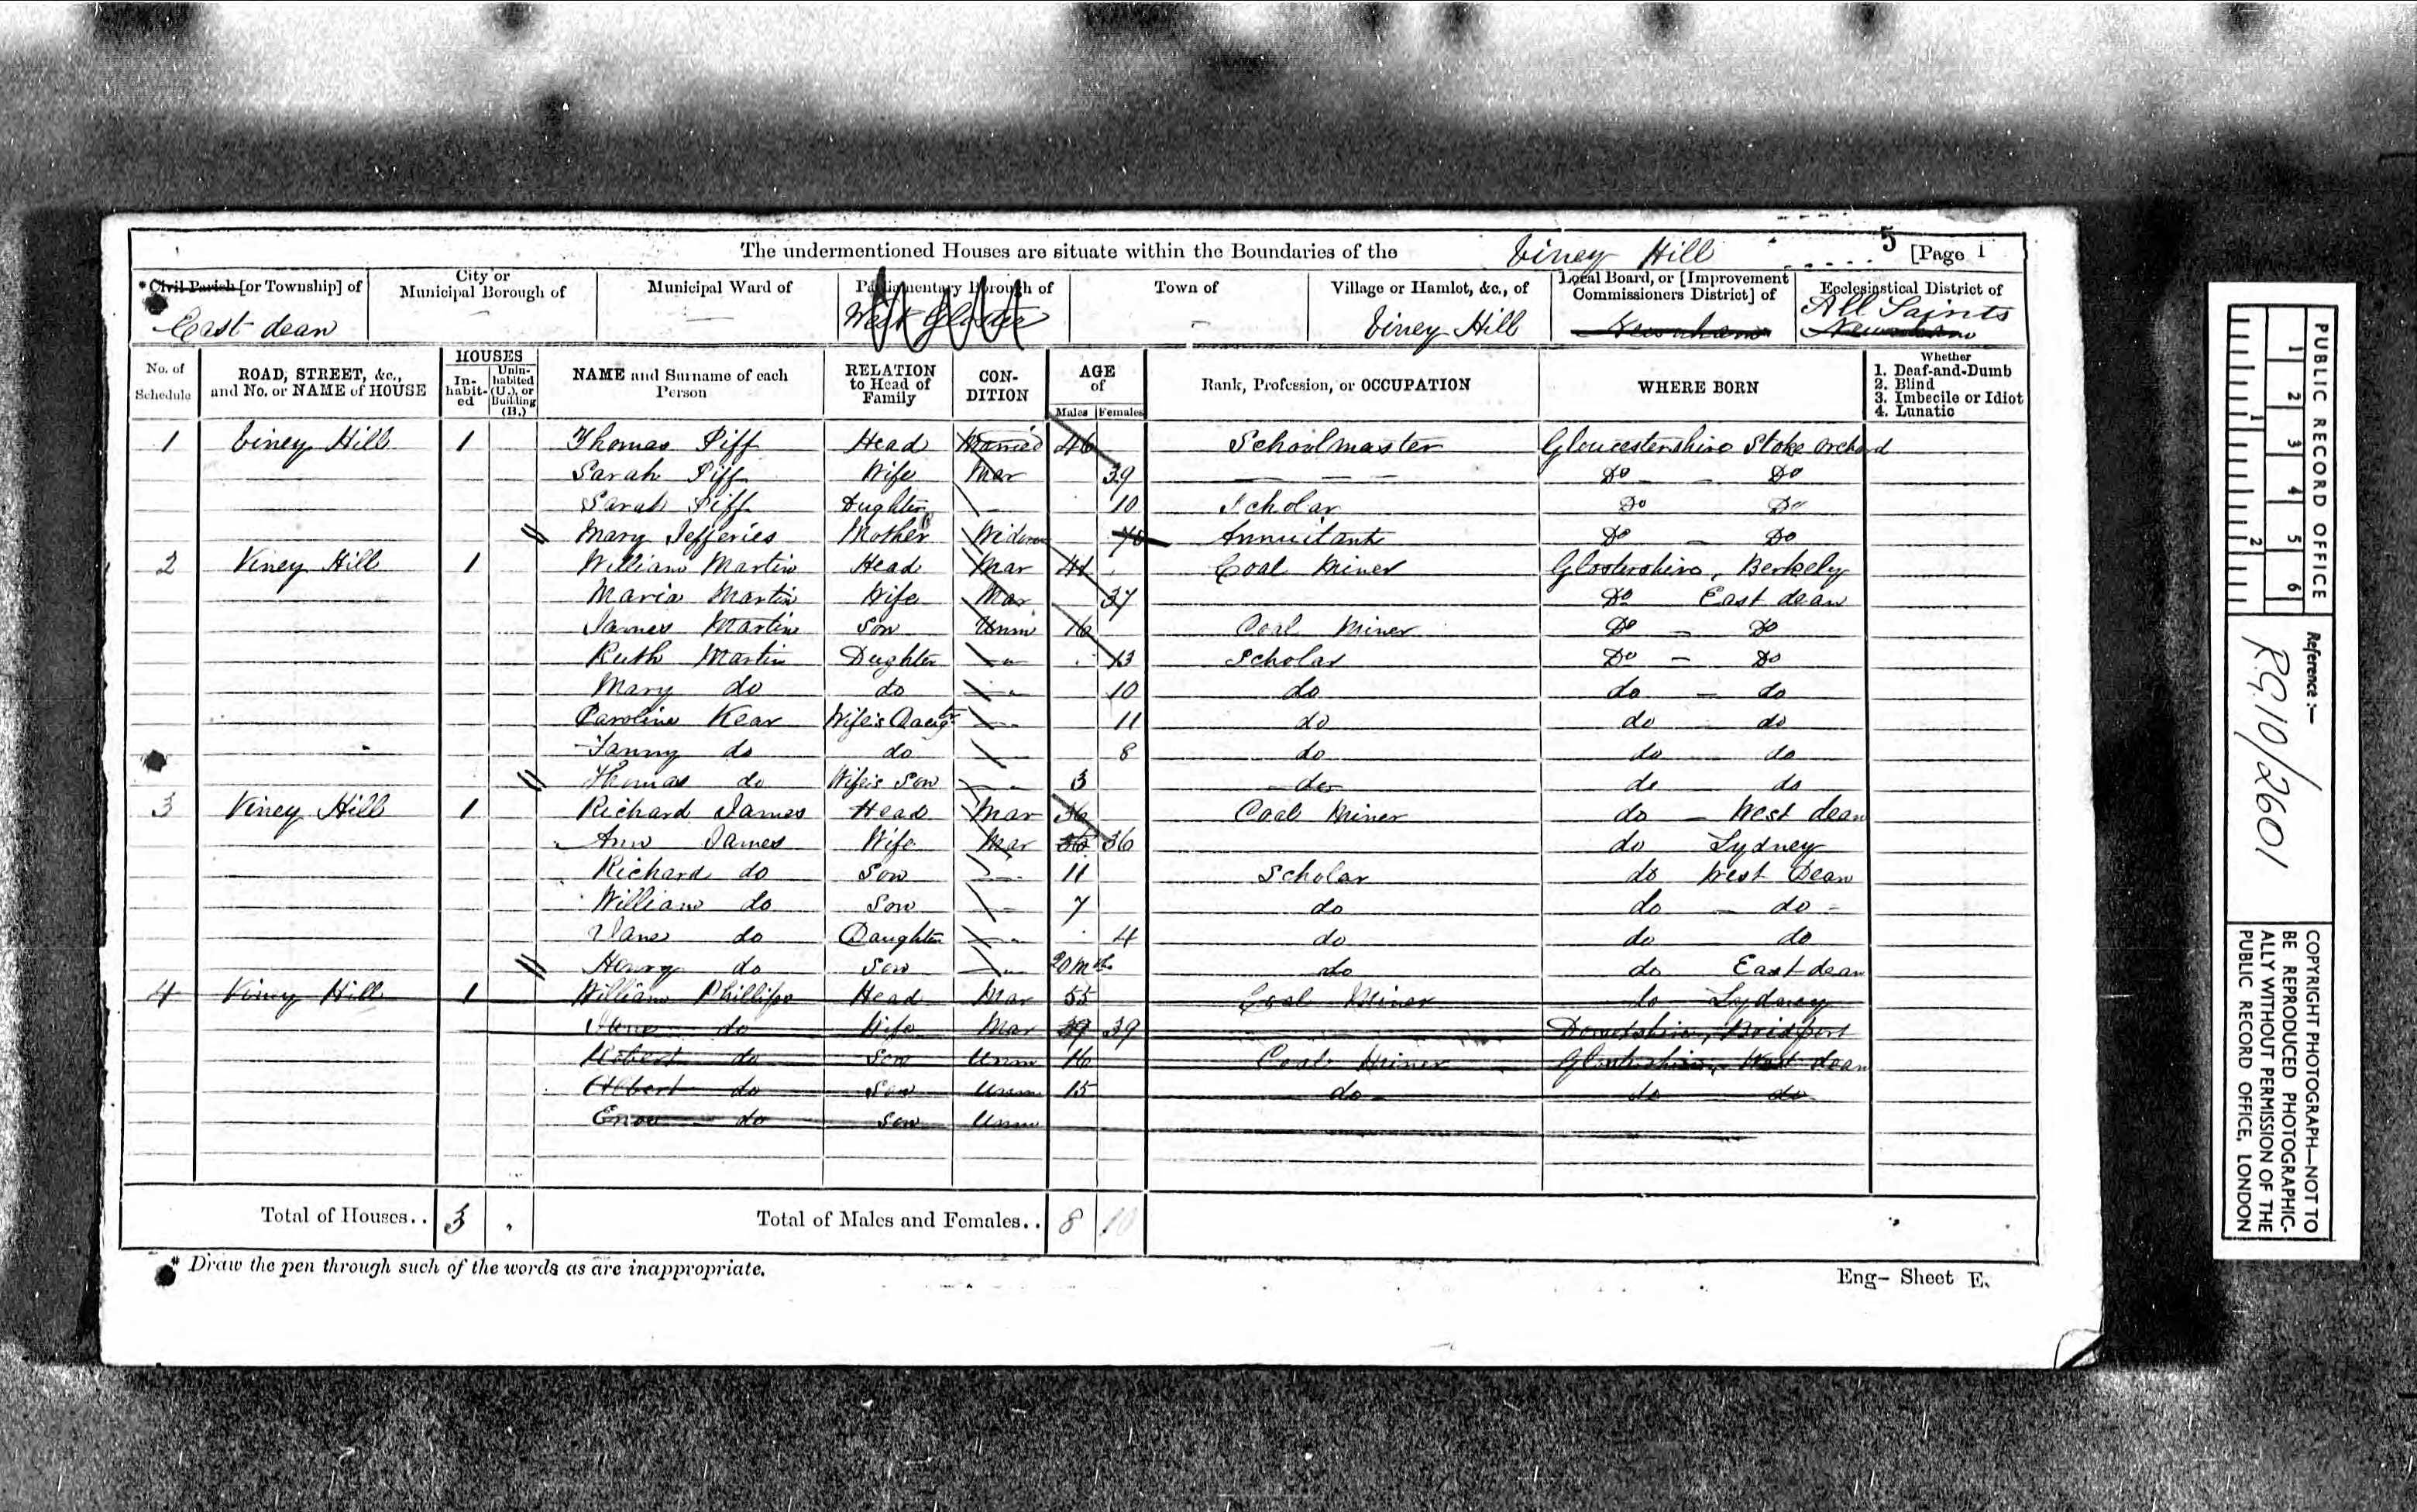 The undermentioned Houses are situate within the Boundaries of the Viney Hill 5 [Page 1
* Civil Parish [or Township] of City or Municipal Borough of Municipal Ward of Parliamentary Borough of Town of Village or Hamlet, &c., of Local Board, or [Improvement Commissioners District] of Ecclesiastical District of
East dean — — West Viney Hill Newnham All Saints Newnham
No. of Schedule ROAD, STREET, &c., and No. or NAME of HOUSE HOUSES In-habit-ed Unin-habited (U.), or Building (B.) NAME and Surname of each Person RELATION to Head of Family CON-DITION AGE of Males Females Rank, Profession, or OCCUPATION WHERE BORN Whether 1. Deaf-and-Dumb 2. Blind 3. Imbecile or Idiot 4. Lunatic
1 Viney Hill 1 Thomas Piff Head Married 46 Schoolmaster Gloucestershire Stoke Orchard
Sarah Piff Wife Mar 39 — — — Do — Do
Sarah Piff Dughter 10 Scholar Do Do
Mary Jefferies Mother Widow Annuitant Do — Do
2 Viney Hill 1 William Martin Head Mar 41 Coal Miner Glostershire, Berkely
Maria Martin Wife Mar 37 Do East dean
James Martin Son Unm 16 Coal Miner Do — Do
Ruth Martin Dughter 13 Scholar Do — Do
Mary do do 10 do do — do
Caroline Kear Wife's Daugtr 11 do do do
Fanny do do 8 do do do
Thomas do Wife's Son 3 do do do
3 Viney Hill 1 Richard James Head Mar 36 Coal Miner do — West dean
Ann James Wife Mar 36 36 do Lydney
Richard do Son 11 Scholar do West Dean
William do Son 7 do do — do
Jane do Daughter 4 do do do
Henry do Son 20 Mth do do East dean
4 Viney Hill 1 William Phillips Head Mar 55 Coal Miner do Lydney
Jane do Wife Mar 39 39 Dorsetshire, Bridport
Robert do Son Unm 16 Coal Miner Glostershire, West dean
Albert do Son Unm 15 do do do
do Son Unm
Total of Houses.. 3 Total of Males and Females.. 8 10
* Draw the pen through such of the words as are inappropriate.
Eng- Sheet E.
PUBLIC RECORD OFFICE
1 2 3 4 5 6
1 2
Reference :—
R.G.10/2601
COPYRIGHT PHOTOGRAPH—NOT TO
BE REPRODUCED PHOTOGRAPHIC-
ALLY WITHOUT PERMISSION OF THE
PUBLIC RECORD OFFICE, LONDON